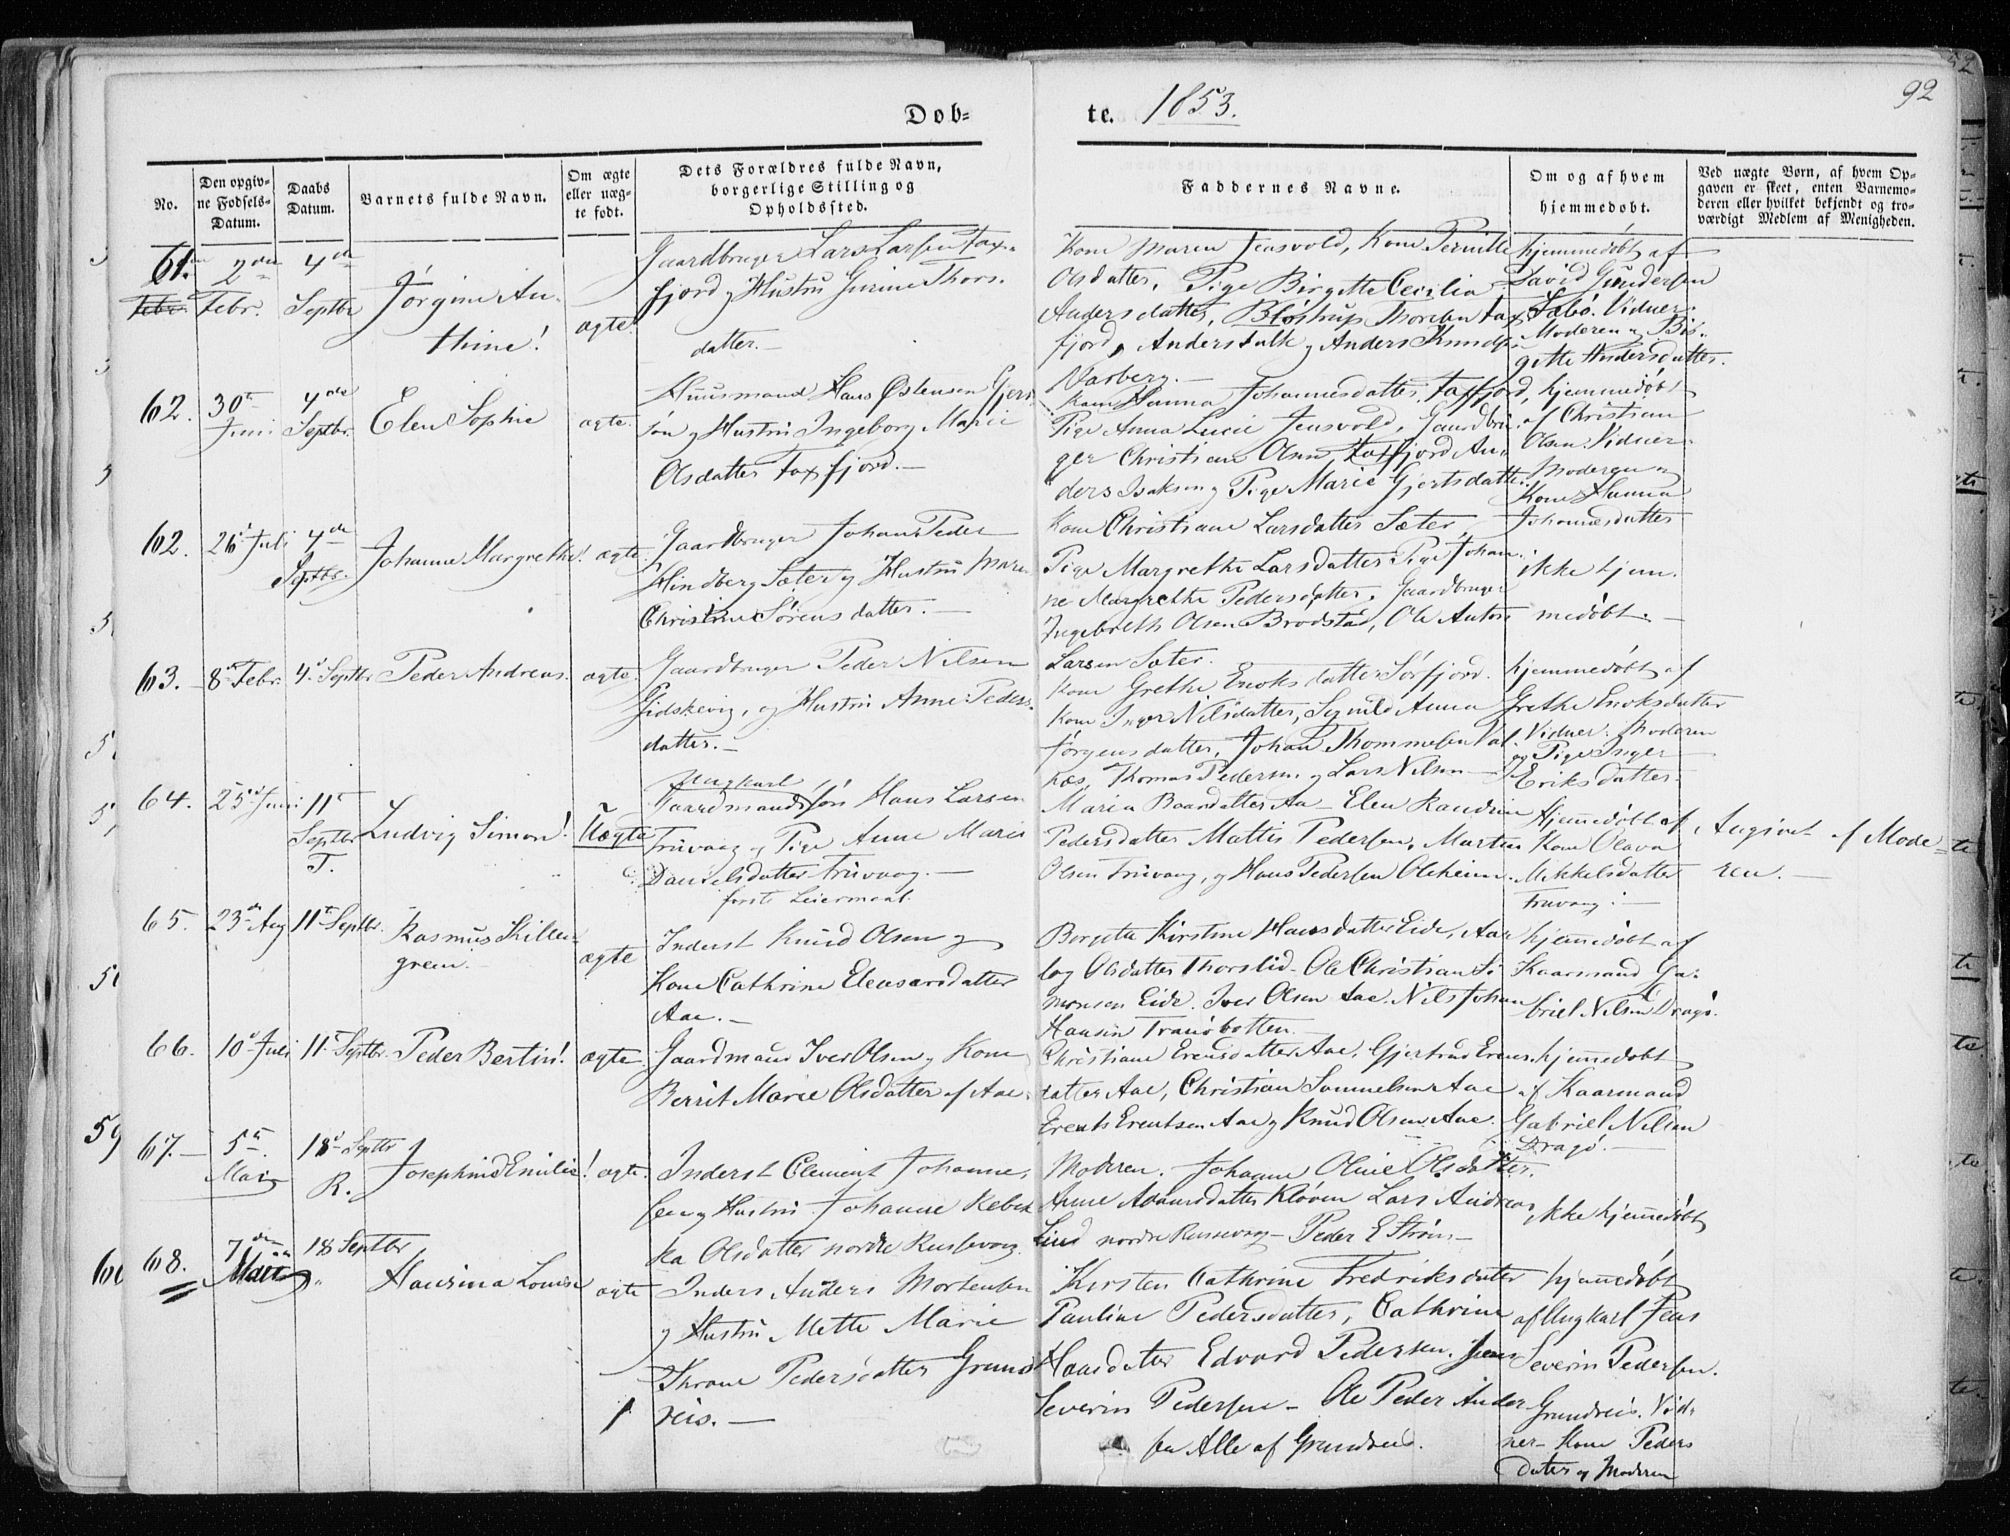 92
Døb= te. 1853.
No.
Den opgiv-
ne Fødsels-
Datum.
Daabs
Datum.
Barnets fulde Navn.
Om ægte
eller uæg-
te født.
Dets Forældres fulde Navn,
borgerlige Stilling og
Opholdssted.
Faddernes Navne.
Om og af hvem
hjemmedøbt.
Ved uægte Børn, af hvem Op-
gaven er skeet, enten Barnemo-
deren eller hvilket bekjendt og tro-
værdigt Medlem af Menigheden.
61.
2den
Febr.
4de
Septbr
Jörgine An-
thine!
ægte!
Gaardbruger Lars Larsen Tax-
fjord og Hustru Gurine Thors-
datter.—
Kone Maren Jensvold, Kone Pernille
Olsdatter, Pige Birgitte Cecilia
Andersdatter, Bløstrup Morten Tax
fjord, Anders Falk og Anders Knuds
Varberg.—
hjemmedøbt af
David Gundersen
Sæbø. Vidner:
Moderen og Bir-
gitte Andersdatter.
62.
30te
Juni
4de
Septbr.
Elen Sophie
ægte.
Huusmand Hans Østensen Gjers
søn og Hustru Ingeborg Marie
Olsdatter Taxfjord.—
Kone Hanna Johannesdatter, Taxfjord,
Pige Anna Lucie Jensvold, Gaardbru-
ger Christian Olsen, Taxfjord An-
ders Isaksen og Pige Marie Gjertsdatter.
hjemmedøbt
af Christian
Olsen. Vidner:
Moderen og
Kone Hanna
Johannesdatter
62.
26 Juli
4de
Septbr.
Johanne Margrethe!
ægte.
Gaardbruger Johan Peder
Hindberg Sæter og Hustru Maren
Christine Sørensdatter.—
Kone Christiane Larsdatter Sæter,
Pige Margrethe Larsdatter Pige Johan-
ne Margrethe Pedersdatter. Gaardbruger
Ingebreth Olsen Brødstad, Ole Anton
Larsen Sæter.
ikke hjem-
medøbt.—
63.
8de Febr.
4de Septbr
Peder Andreas.
ægte.
Gaardbruger Peder Nilsen
Gidskevig, og Hustru Anne Peders-
datter.—
Kone Grethe Enoksdatter Sørfjord.
Kone Inger Nilsdatter, Anna
Jørgensdatter, Johan Thommesen Val-
næs, Thomas Pedersen og Lars Nilsen—
hjemmedøbt af
Grethe Enoksdatter
Vidner: Moderen
og Pige Inger
Eriksdatter.
64.
25de Juni
11te
Septbr
T.
Ludvig Simon!
Uægte
Ungkarl
Gaardmandssøn Hans Larsen
Truvaag og Pige Anne Marie
Danielsdatter Truvaag.—
første Leiermaal.
Maria Baardatter Aa— Elen Randine
Pedersdatter Mattis Pedersen. Martin
Olsen Truvaag, og Hans Pedersen Oleheim.
Hjemmedøbt af
Kone Olava
Mikkelsdatter
Truvaag.—
Angivet af Mode-
ren.—
65.
23de Aug
11te Septbr.
Rasmus Killen-
green.
ægte
Inderst Knud Olsen og
Kone Cathrine Eleasarsdatter
Aae.—
Birgitta Kirstine Hansdatter Eide, Aas
log Olsdatter Thorslid— Ole Christian Si-
monsen Eide. Iver Olsen Aae. Nils Johan
Hansen Tranøbotten.—
hjemmedøbt af
Kaarmand Ga-
briel Nilsen Dragø.
66.
10de Juli
11te Septbr.
Peder Bertin!
ægte.
Gaardmand Iver Olsen og Kone
Berrit Marie Olsdatter af Aae.
Christiane Erensdatter Aae, Gjertrud Erens-
datter Aae, Christian Sammelsen Aae
Erents Erentsen Aae og Knud Olsen Aae.
hjemmedøbt
af Kaarmand
Gabriel Nilsen
Dragø.—
67.—
5te
Mai
18de Septbr
R.
Josephine Emilie!
ægte.
Inderst Clement Johanne-
sen og Hustru Johanne Rebek
ka Olsdatter nordre Russevaag.
Moderen. Johanne Oline Olsdatter.
Anne Adamsdatter Kløven Lars Andreas
Lind nordre Russevaag— Peder E Strøm—
ikke hjemmedøbt
68.
7de
Mai
18 Septbr
Hansina Lovise
ægte
Inders. Anders Mortensen
og Hustru Mette Marie
Throne Pedersdatter Grund
reis.—
Kirsten Cathrine Fredriksdatter
Pauline Pedersdatter, Cathrine
Hansdatter Edvard Pedersen. Jens
Severin Pedersen— Ole Peder Ander
sen Alle af Grundreis.
hjemmedøbt
af Ungkarl Jens
Severin Pedersen.
Grundreis. Vid-
ner— Kone Peders
datter og Moderen